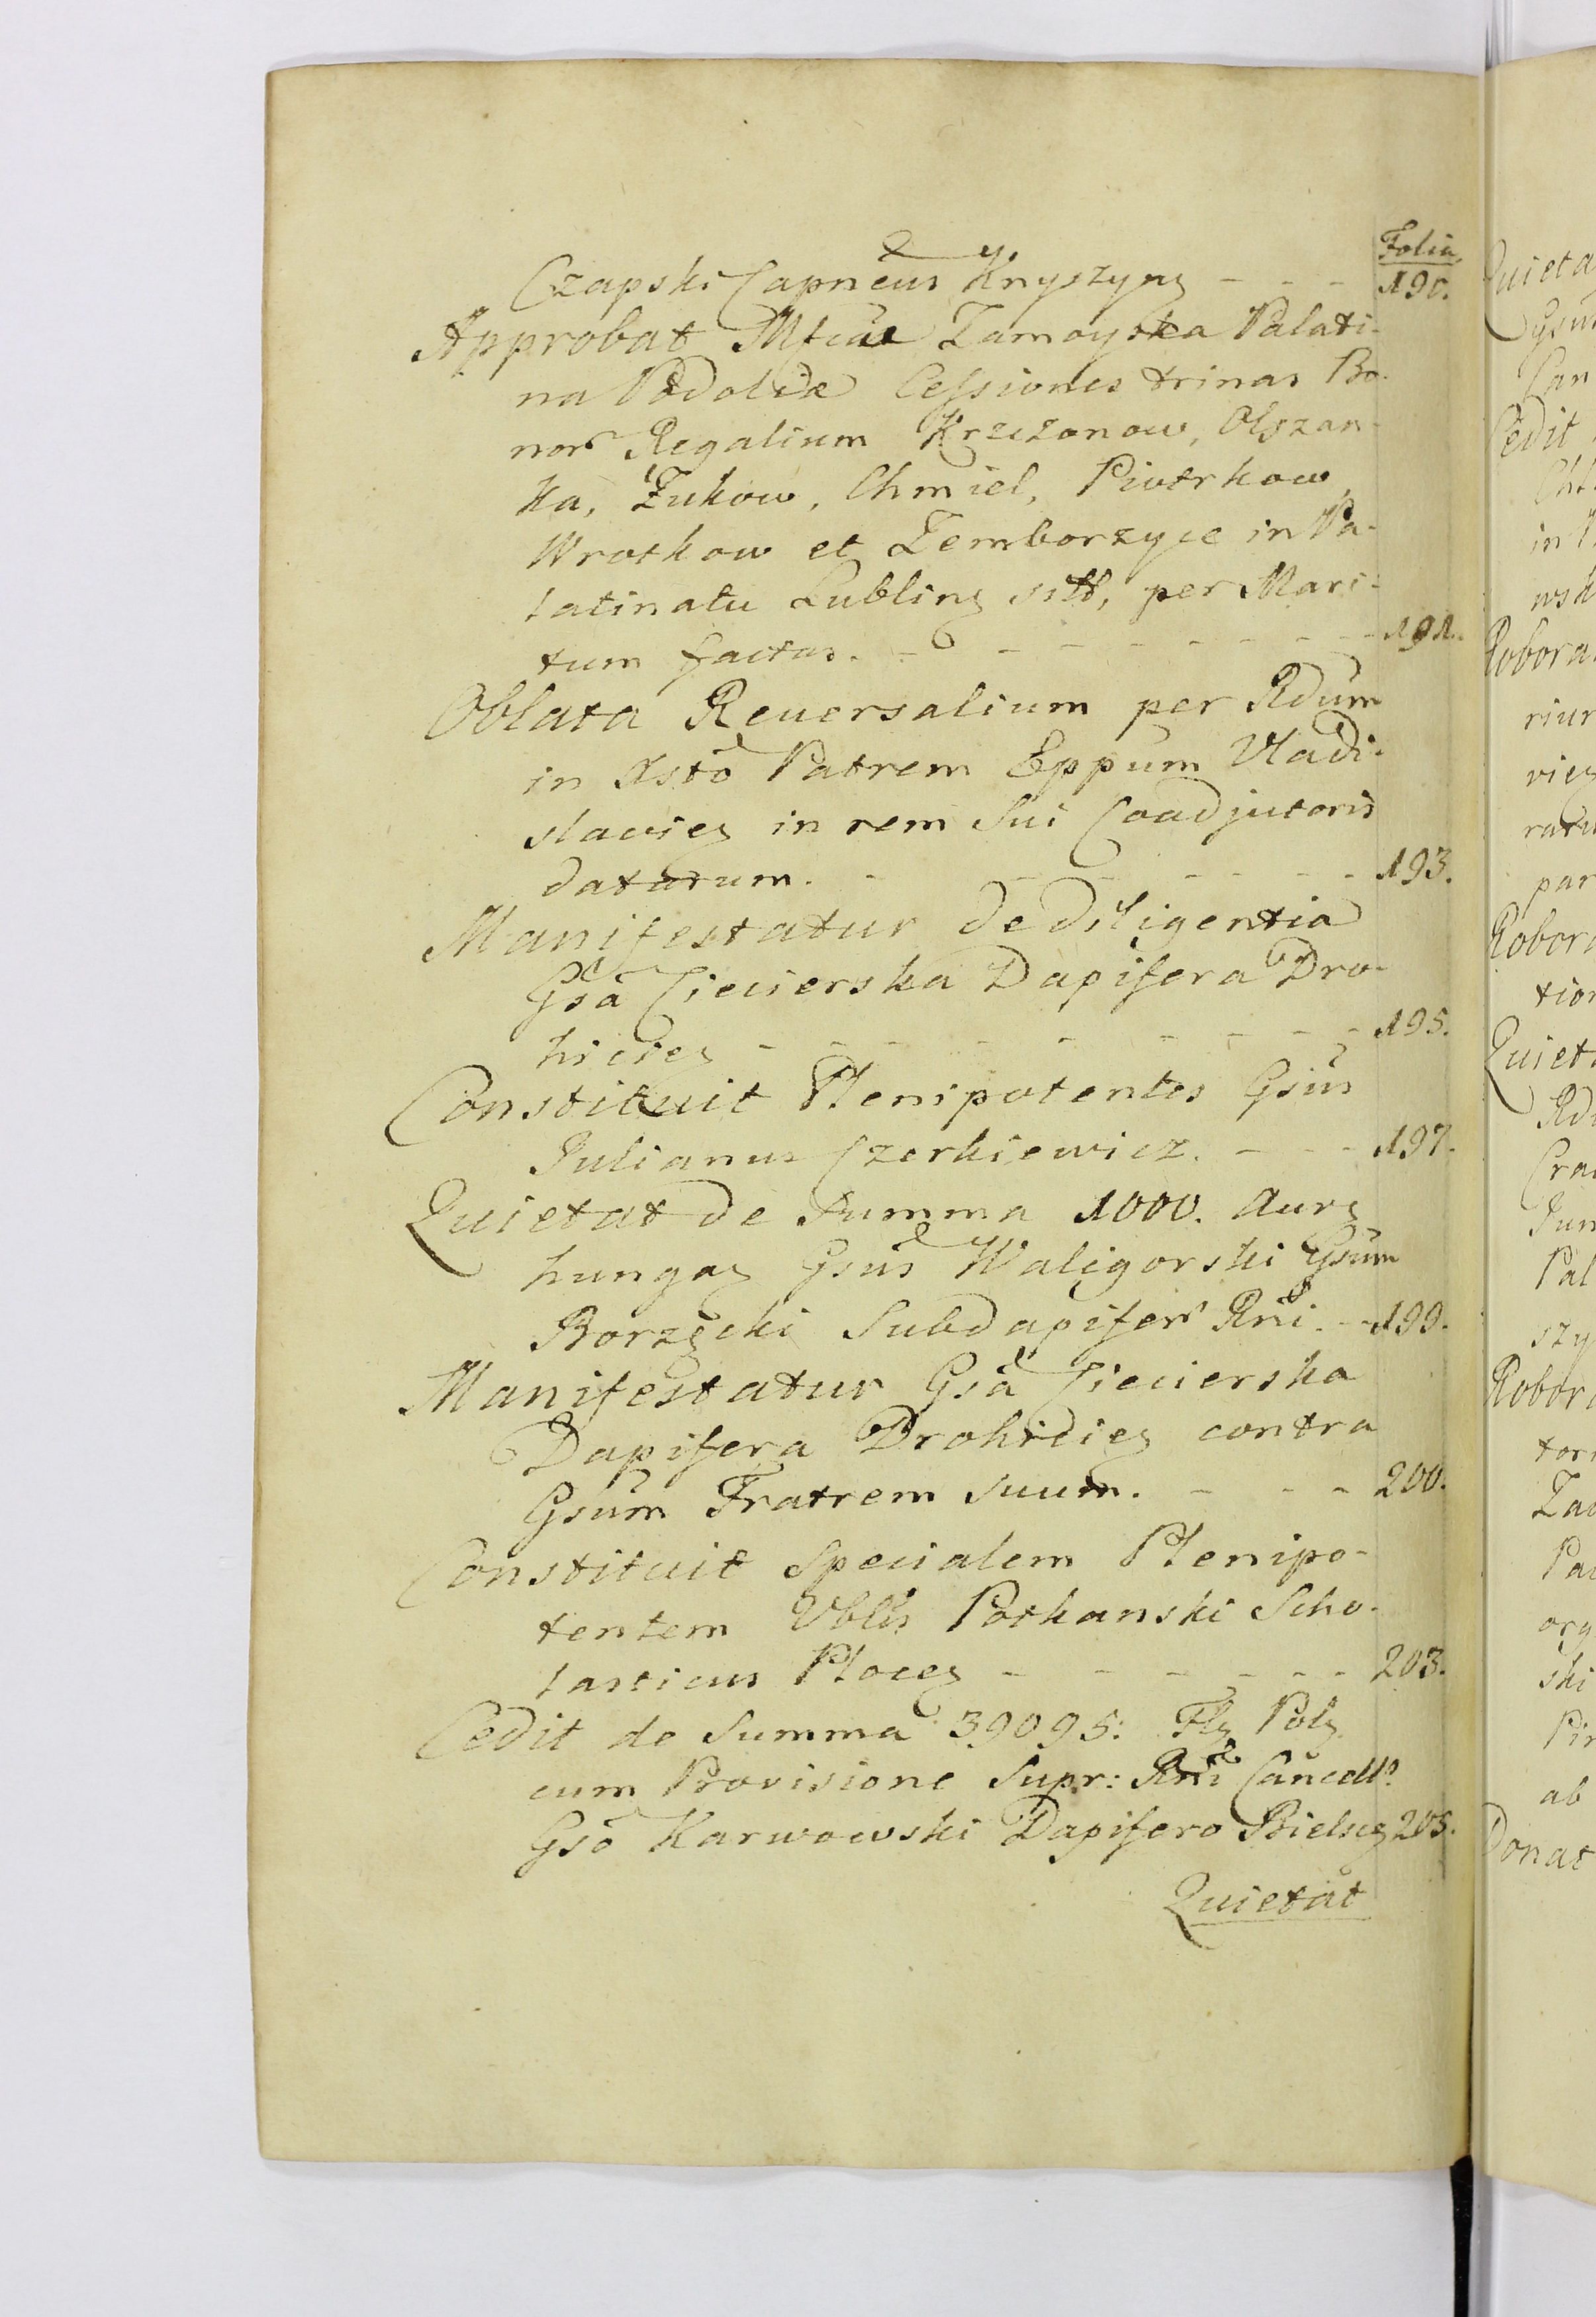 Folia
Czapski Capneus Knyszyng - - - 190.
Approbat Mfica Zamoyska Palati-
na Podoliæ Cessiones trinas Bo-
nor Regalium Krzczonow, Olszan-
ka, Żukow, Chmiel, Piotrkow,
Wrotkow et Zemborzyce in Pa-
latinatu Lubling sitt, per Mari-
tum factas. - - - - - - - 191.
Oblata Reversalium per Rdum
in Xsto Patrem Eppum Vladi-
slavieg in rem Sui Coadjutoris
datarum. - - - - - - 193.
Manifestatur de diligentia
Gsa Ciecierska Dapifera Dro-
hicieg - - - - - - - 195.
Constituit Plenipotentes Gsus
Julianus Czerkiewicz. - - - 197.
Quietat de Summa 1000. Aurg
hungag Gsus Waligorski Gsum
Borzęcki Subdapifer Rni. - 199.
Manifestatur Gsa Ciecierska
Dapifera Drohicieg contra
Gsum Fratrem suum. - - - 200.
Constituit Specialem Plenipo-
tentem Vblis Potkanski Scho-
lasticus Ploceg - - - - - - 203.
Cedit de Summa 39095: Flg Polg
cum Provisione Supr: Rni Cancell
Gso Karwowski Dapifero Bielseg 205.
Quietat
Quieta
Gsum
Can
Cedit
in
wsk
Robora
riur
vieg
ratu
par
Robora
tion
Quieta
Rdu
Cra
Jun
Pal
szy
Robora
tor
Zau
Pal
org
ski
Pin
ab
Donat